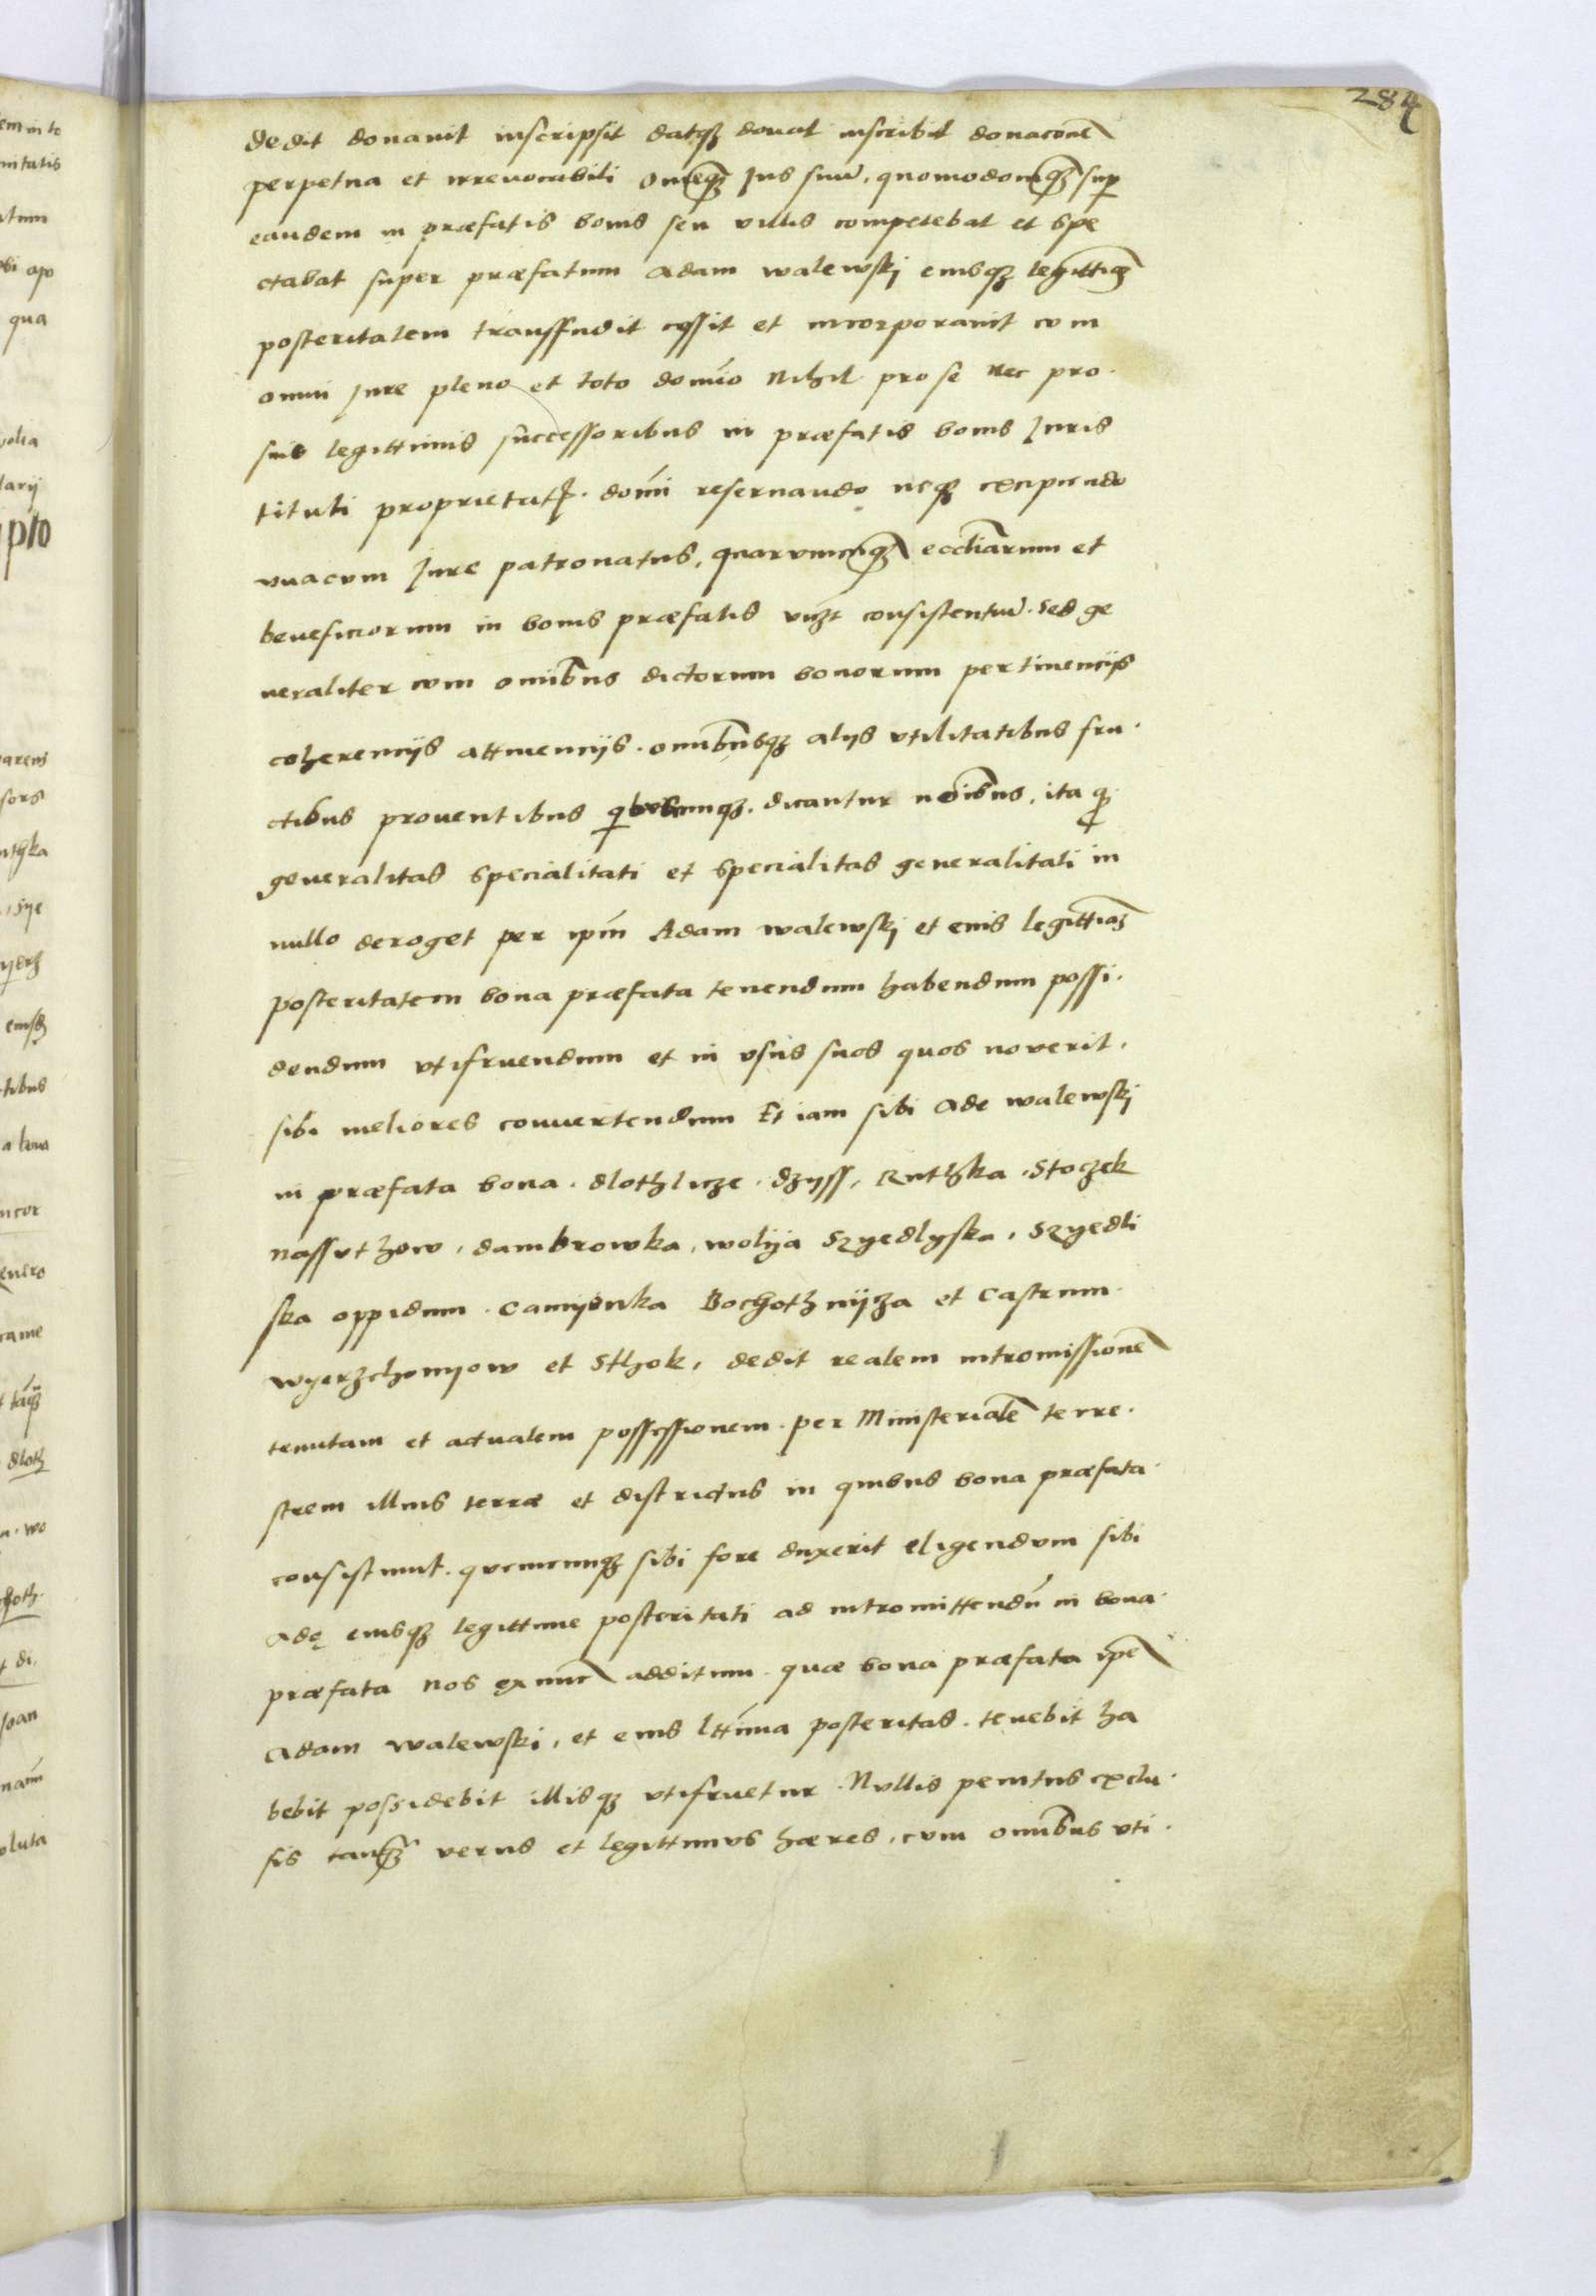 284
dedit donauit inscripsit datqz donat inscribit donacone
perpetua et irreuocabili omeqz Jus suu, quomodocuqz sup
eandem in præfatis bonis seu villis competebat et spe
ctabat super præfatum Adam walewskj eiusqz legittimaz
posteritatem transfudit cessit et incorporauit cum
omni Jure pleno et toto domīo Nihil pro se nec pro
suis legittimis successoribus in præfatis bonis Juris
tituli proprietat. domī reseruando neqz excipiendo
vnacum Jure patronatus, quarumcuqz eccliarum et
beneficiorum in bonis præfatis vigzt consistentiu. sed ge
neraliter cum omibus dictorum bonorum pertinencijs
coherencijs attinencijs. omibusqz alijs vtilitatibus fru
ctibus prouentibus quibuscunqz. dicantur noibus, ita q
generalitas specialitati et specialitas generalitati in
nullo deroget per ipm Adam walewskj et eius legittiaz
posteritatem bona præfata tenendum habendum possi
dendum vtifruendum et in vsus suos quos nouerit.
sibi meliores conuertendum Et iam sibi Ade walewskj
in præfata bona. dlothlicze. dzyss, Ruthka. Stoczek
Nassuthow, dambrowka, wolya Szyedlyska, Szyedli
ska oppidum. Camyonka Bochothnycza et Castrum.
wyerzchomyow et Sthok, dedit realem intromissione
tenutam et actualem possessionem. per Ministeriale terre
strem illius terræ et districtus in quibus bona præfata.
consistunt. quemcunqz sibi fore duxerit eligendum sibi
Adę eiusqz legittime posteritati ad intromittendu in bona.
præfata Nos ex nuc additum. quæ bona præfata ipe
Adam walewski, et eius lttima posteritas. tenebit ha
bebit possidebit illisqz vtifruetur. Nullis penitus exclu
sis tanqz verus et legittimus hæres, cum omibus vti.